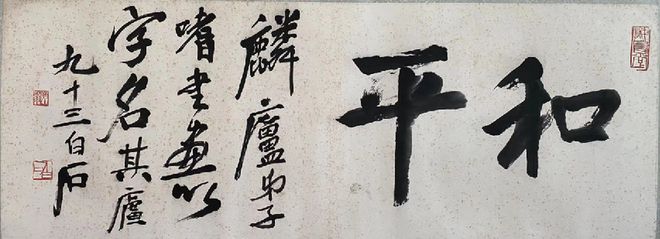 和平
麟廬弟子
嗜書畫以
字名其廬
九十三白石